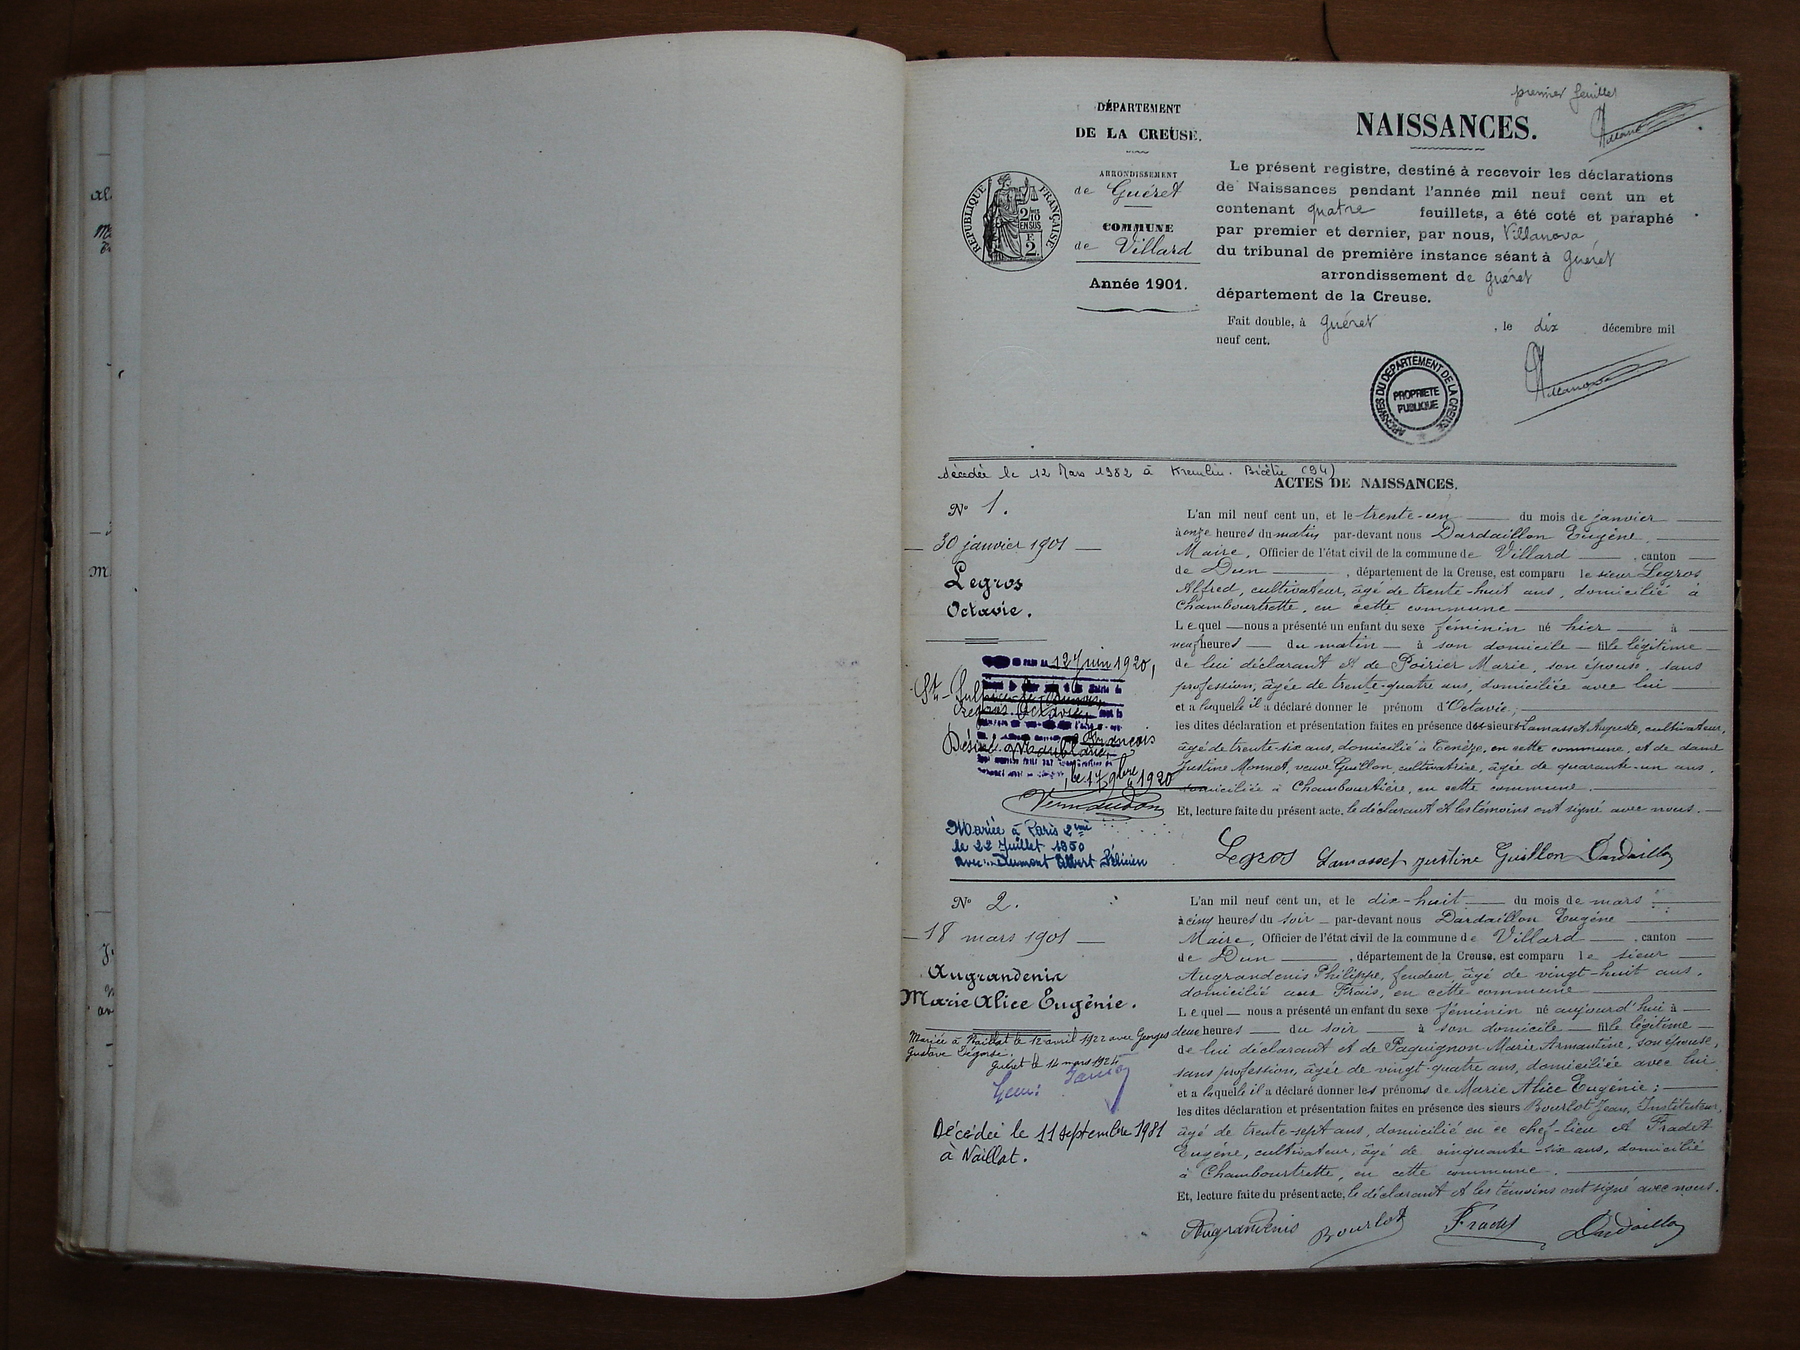 premier feuillet
DÉPARTEMENT
DE LA CREUSE.
ARRONDISSEMENT
de Guéret
COMMUNE
de Villard
Année 1901.
RÉPUBLIQUE FRANÇAISE
NAISSANCES.
Le présent registre, destiné à recevoir les déclarations
de Naissances pendant l'année mil neuf cent un et
contenant quatre feuillets, a été coté et paraphé
par premier et dernier, par nous, Villanova
du tribunal de première instance séant à Guéret
arrondissement de Guéret
département de la Creuse.
Fait double, à Guéret, le dix décembre mil
neuf cent.
Villanova
ARCHIVES DU DÉPARTEMENT DE LA CREUSE
PROPRIETE
PUBLIQUE
décédée le 12 Mars 1982 à Kremlin-Bicêtre (94)
ACTES DE NAISSANCES.
N° 1.
30 janvier 1901
Legros
Octavie.
12 Juin 1920,
Legros Octavie,
François
Désiré
le 17 9bre 1920
Mariée à Paris 2me
le 22 Juillet 1950
avec Dumont Albert Félicien
L'an mil neuf cent un, et le trente-un du mois de janvier
à onze heures du matin par-devant nous Dardaillon Eugène,
Maire, Officier de l'état civil de la commune de Villard, canton
de Dun, département de la Creuse, est comparu le sieur Legros
Alfred, cultivateur, âgé de trente-huit ans, domicilié à
Chambourtrette, en cette commune
Lequel nous a présenté un enfant du sexe féminin né hier à
neuf heures du matin à son domicile fille légitime
de lui déclarant et de Poirier Marie, son épouse, sans
profession, âgée de trente-quatre ans, domiciliée avec lui
et a laquelle il a déclaré donner le prénom d'Octavie;
les dites déclaration et présentation faites en présence des sieurs Lamasset Auguste, cultivateur,
âgé de trente-six ans, domicilié à Tenèze, en cette commune, et de dame
Justine Monnet, veuve Guillon, cultivatrice, âgée de quarante-un ans,
domiciliée à Chambourtière, en cette commune.
Et, lecture faite du présent acte, le déclarant et les témoins ont signé avec nous.
Legros Lamasset Justine Guillon Dardaillon
N° 2.
18 mars 1901
Augrandenis
Marie Alice Eugénie.
Mariée à Naillat le 12 avril 1922 avec Georges
Gustave Légorse.
Guéret le 14 mars 1925
Décédée le 11 septembre 1981
à Naillat.
L'an mil neuf cent un, et le dix-huit du mois de mars
à cinq heures du soir par-devant nous Dardaillon Eugène
Maire, Officier de l'état civil de la commune de Villard, canton
de Dun, département de la Creuse, est comparu le sieur
Augrandenis Philippe, feudeur, âgé de vingt-huit ans,
domicilié aux Frais, en cette commune
Lequel nous a présenté un enfant du sexe féminin né aujourd'hui à
deux heures du soir à son domicile fille légitime
de lui déclarant et de Paquignon Marie Armantine, son épouse,
sans profession, âgée de vingt-quatre ans, domiciliée avec lui
et a laquelle il a déclaré donner les prénoms de Marie Alice Eugénie;
les dites déclaration et présentation faites en présence des sieurs Bourlot Jean, Instituteur,
âgé de trente-sept ans, domicilié en ce chef-lieu et Fradet
Eugène, cultivateur, âgé de cinquante-six ans, domicilié
à Chambourtrette, en cette commune.
Et, lecture faite du présent acte, le déclarant et les témoins ont signé avec nous.
Augrandenis Bourlot Fradet Dardaillon